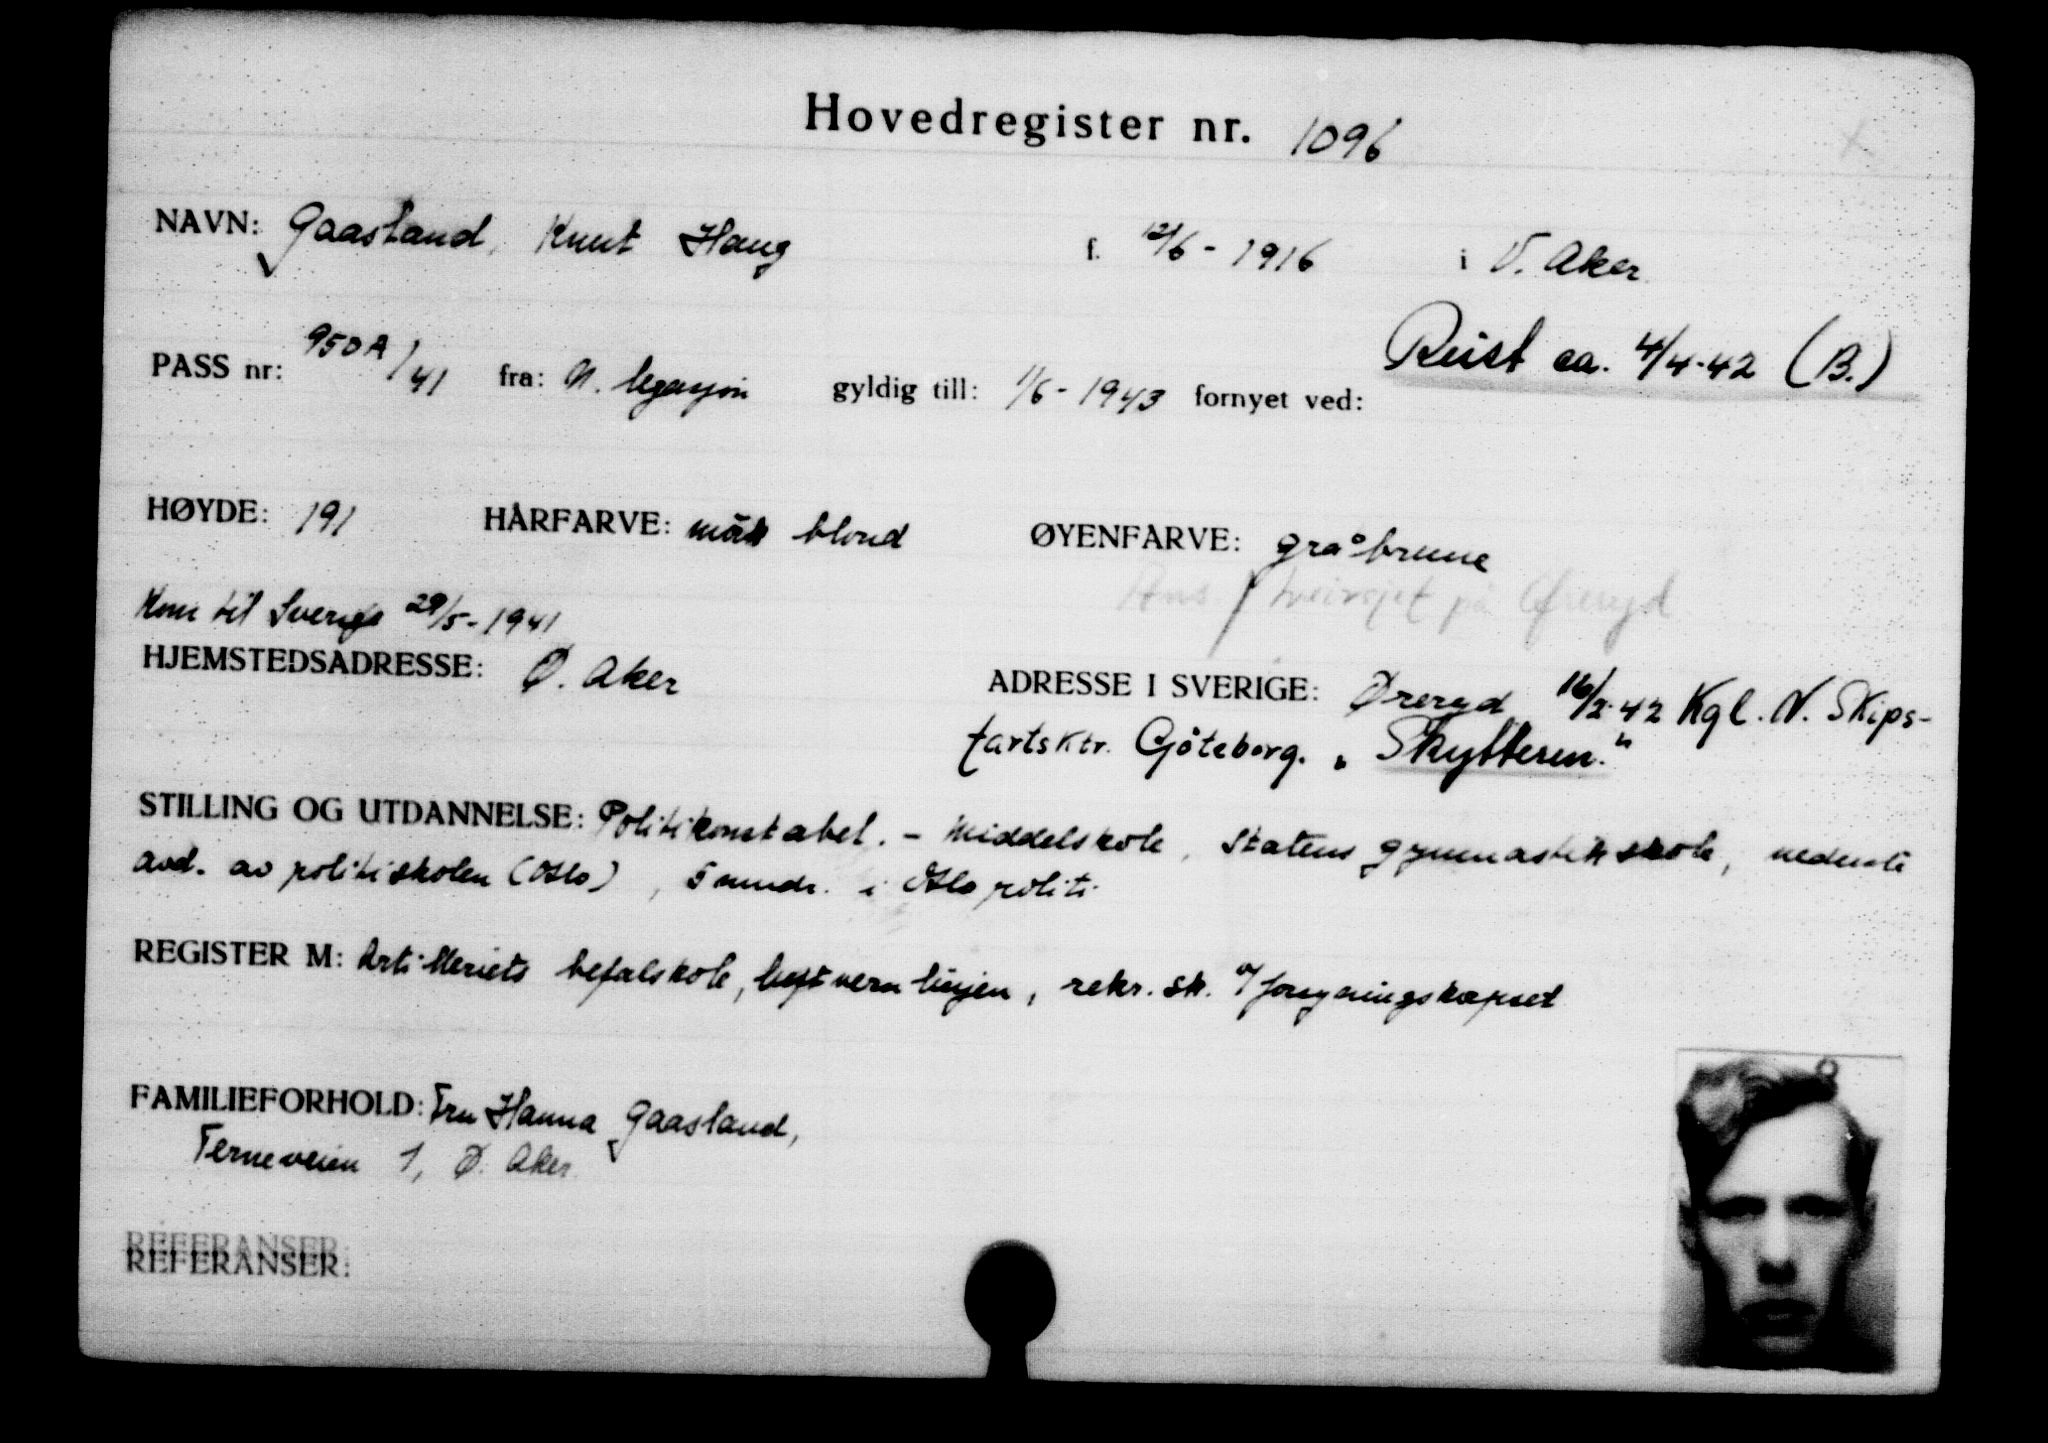 Hovedregister nr. 1096
NAVN: Gaasland, Knut Haug f. 12/6 - 1916 i V. Aker
Reist ca. 4/4-42 (B.)
PASS nr: 950A/41 fra: N. legasjon gyldig till: 1/6 - 1943 fornyet ved:
HØYDE: 191 HÅRFARVE: mörk blond ØYENFARVE: gråbrune
på Øreryd
Kom til Sverige 29/5-1941
HJEMSTEDSADRESSE: Ø. Aker ADRESSE I SVERIGE: Øreryd 16/2-42 Kgl. N. Skips-
fartsktr. Göteborg. „Skytteren."
STILLING OG UTDANNELSE: Politikonstabel. - Middelskole, Statens gymnastikkskole, nederste
avd. av politiskolen (Oslo), 5 mndr. i Oslo politi
REGISTER M: Artilleriets befalskole, luftvernlinjen, rekr. sk. forsyningskorpset
FAMILIEFORHOLD: Fru Hanna Gaasland,
Terneveien 1, Ø. Aker.
REFERANSER:
REFERANSER: